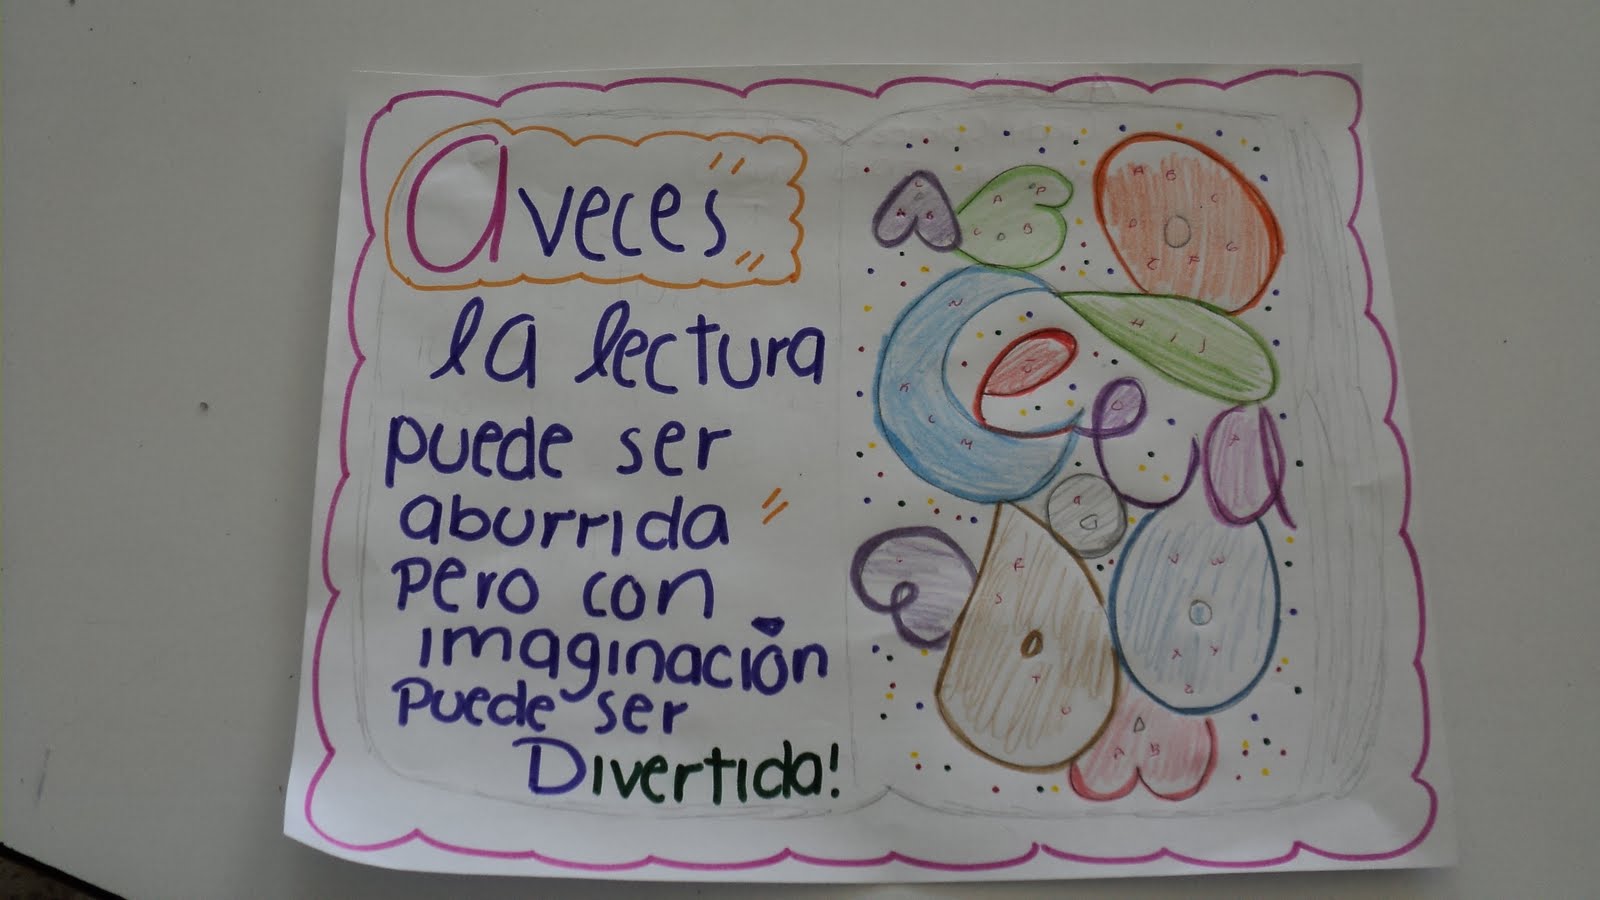 A veces
la lectura
puede ser
aburrida
pero con
imaginación
puede ser
Divertida!